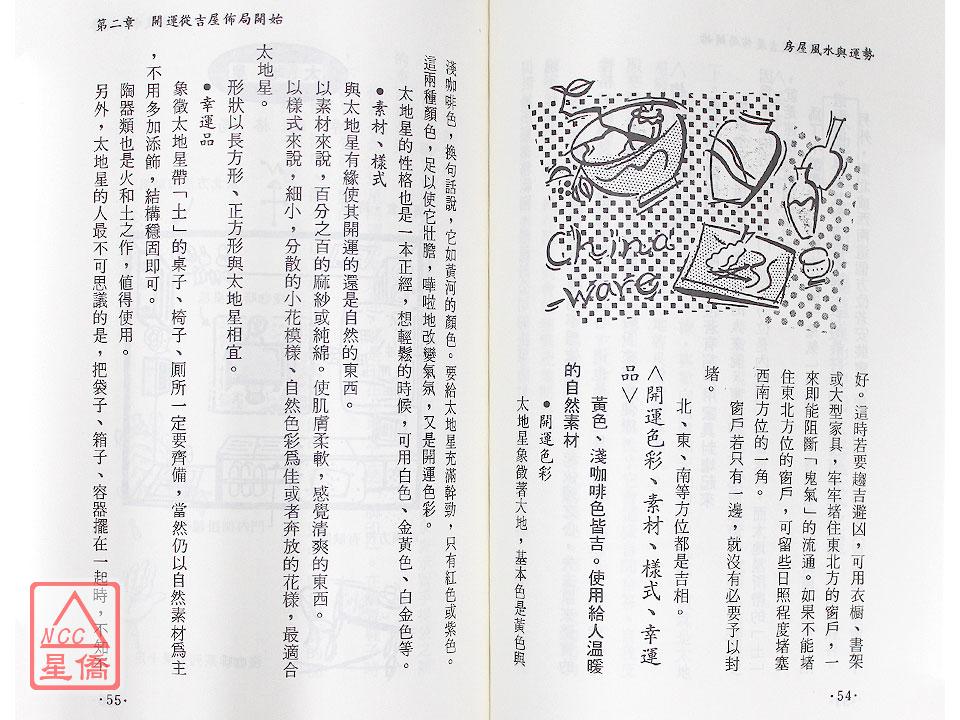 房屋風水與運勢
China
ware
好。這時若要趨吉避凶，可用衣櫥、書架
或大型家具，牢牢堵住東北方的窗戶，一
來即能阻斷「鬼氣」的流通。如果不能堵
住東北方位的窗戶，可留些日照程度堵塞
西南方位的一角。
窗戶若只有一邊，就沒有必要予以封
堵。
北、東、南等方位都是吉相。
＜開運色彩、素材、樣式、幸運
品＞
黃色、淺咖啡色皆吉。使用給人溫暖
的自然素材
●開運色彩
太地星象徵著大地，基本色是黃色與
·54·
第二章　開運從吉屋佈局開始
淺咖啡色，換句話說，它如黃河的顏色。要給太地星充滿幹勁，只有紅色或紫色。
這兩種顏色，足以使它壯膽，嘩啦地改變氣氛，又是開運色彩。
太地星的性格也是一本正經，想輕鬆的時候，可用白色、金黃色、白金色等。
●素材、樣式
與太地星有緣使其開運的還是自然的東西。
以素材來說，百分之百的麻紗或純綿。使肌膚柔軟，感覺清爽的東西。
以樣式來說，細小，分散的小花模樣、自然色彩爲佳或者奔放的花樣，最適合
太地星。
形狀以長方形、正方形與太地星相宜。
●幸運品
象徵太地星帶「土」的桌子、椅子、厠所一定要齊備，當然仍以自然素材爲主
，不用多加添飾，結構穩固即可。
陶器類也是火和土之作，值得使用。
另外，太地星的人最不可思議的是，把袋子、箱子、容器擺在一起時，不知不
·55·
NCC
星僑